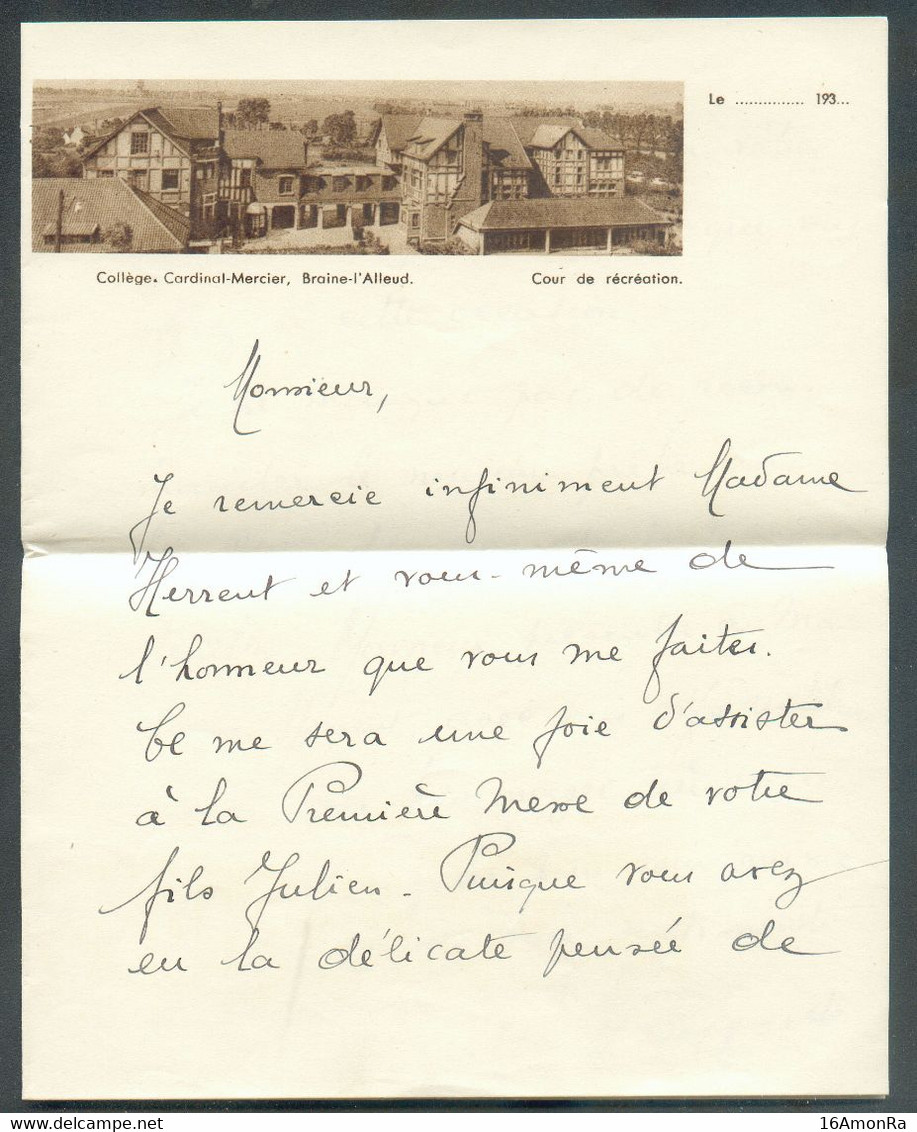 Le ............... 193...
Collège. Cardinal-Mercier, Braine-l'Alleud. Cour de récréation.
Monsieur,
Je remercie infiniment Madame
Herrent et vous-même de
l'honneur que vous me faites.
Ce me sera une joie d'assister
à la Première Messe de votre
fils Julien - Puisque vous avez
eu la délicate pensée de
16AmonRa